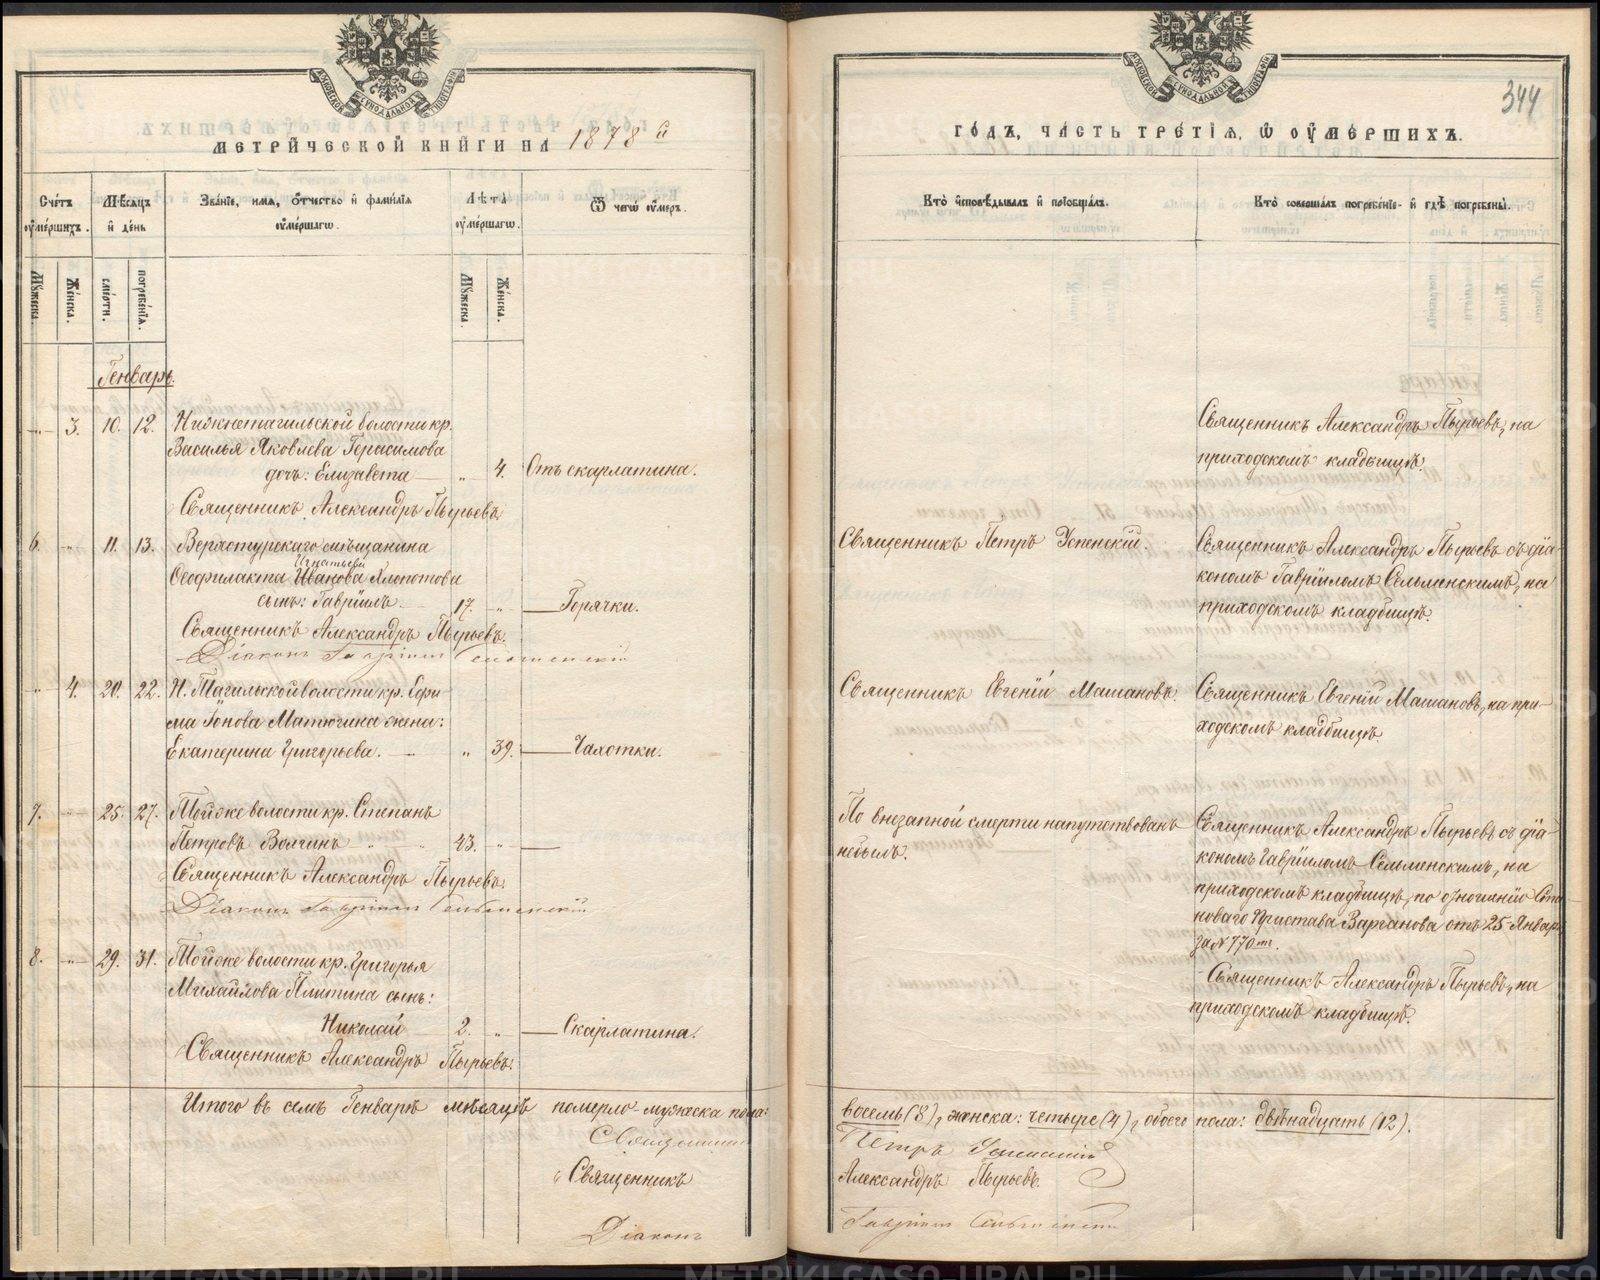 МЕТРИЧЕСКОЙ КНИГИ НА 1878 й
Счетъ оумершихъ.
Мѣсяцъ и день
Званіе, имя, отчество и фамилія оумершагω.
Лѣта оумершагω.
Ѿ чегω оумеръ.
Мужеска.
Женска.
смерти.
погребенія.
Мужеска.
Женска.
Генварь.
„ 3. 10. 12. Нижнетагильской волости кр.
Василья Яковлева Герасимова
дочь: Елизавета „ 4. Отъ скарлатина.
Священникъ Александръ Пырьевъ
6. „ 11. 13. Верхотурскаго мѣщанина
Игнатьева
Феофилакта Иванова Хлопотова
сынъ: Гавріилъ. 17. „ Горячки.
Священникъ Александръ Пырьевъ
Діаконъ Гавріилъ Сельменскій
„ 4. 20. 22. Н. Тагильской волости кр. Ефи-
ма Іонова Матюгина жена:
Екатерина Григорьева. „ 39. Чахотки.
7. „ 25. 27. Тойже волости кр. Степанъ
Петровъ Волгинъ „ „ 43. „
Священникъ Александръ Пырьевъ
Діаконъ Гавріилъ Сельменскій
8. „ 29. 31. Тойже волости кр. Григорья
Михайлова Плитина сынъ:
Николай 2. „ Скарлатина.
Священникъ Александръ Пырьевъ.
Итого въ семъ Генварѣ мѣсяцѣ померло мужеска пола:
Священникъ
Священникъ
Діаконъ
344
ГОДЪ, ЧАСТЬ ТРЕТІЯ, Ѡ ОУМЕРШИХЪ.
Кто исповѣдывалъ и пріобщалъ.
Кто совершалъ погребеніе и гдѣ погребены.
Священникъ Александръ Пырьевъ, на
приходскомъ кладбищѣ.
Священникъ Петръ Успенскій.
Священникъ Александръ Пырьевъ съ діа-
кономъ Гавріиломъ Сельменскимъ, на
приходскомъ кладбищѣ.
Священникъ Евгеній Машановъ.
Священникъ Евгеній Машановъ, на при-
ходскомъ кладбищѣ.
По внезапной смерти напутствованъ
небылъ.
Священникъ Александръ Пырьевъ съ діа-
кономъ Гавріиломъ Сельменскимъ, на
приходскомъ кладбищѣ, по отношенію Ста
новаго Пристава Варганова отъ 25 Январ
за № 770 m.
Священникъ Александръ Пырьевъ, на
приходскомъ кладбищѣ.
восемь (8), женска: четыре (4), обоего пола: двѣнадцать (12).
Петръ Успенскій
Александръ Пырьевъ.
Гавріилъ Сельменскій
METRIKI.GASO-URAL.RU